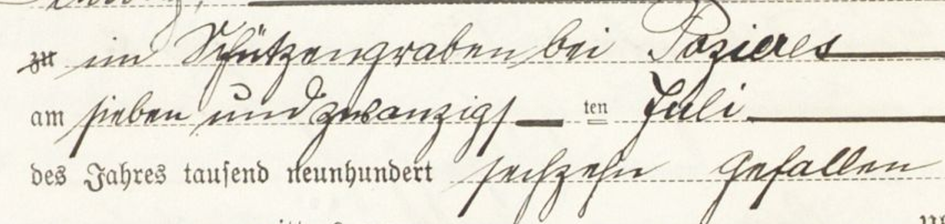 zu im Schützengraben bei Pozieres
am sieben und zwanzigsten Juli
des Jahres tausend neunhundert sechzehn gefallen